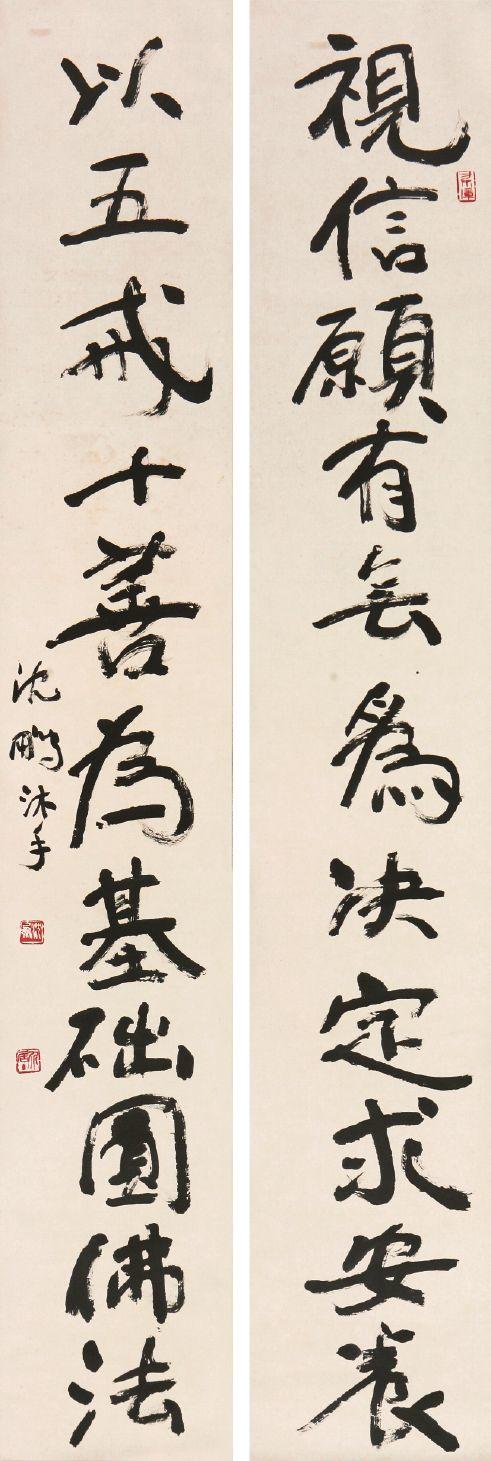 視信願有无為决定求安养
以五戒十善為基础圓佛法
沈鵬沐手